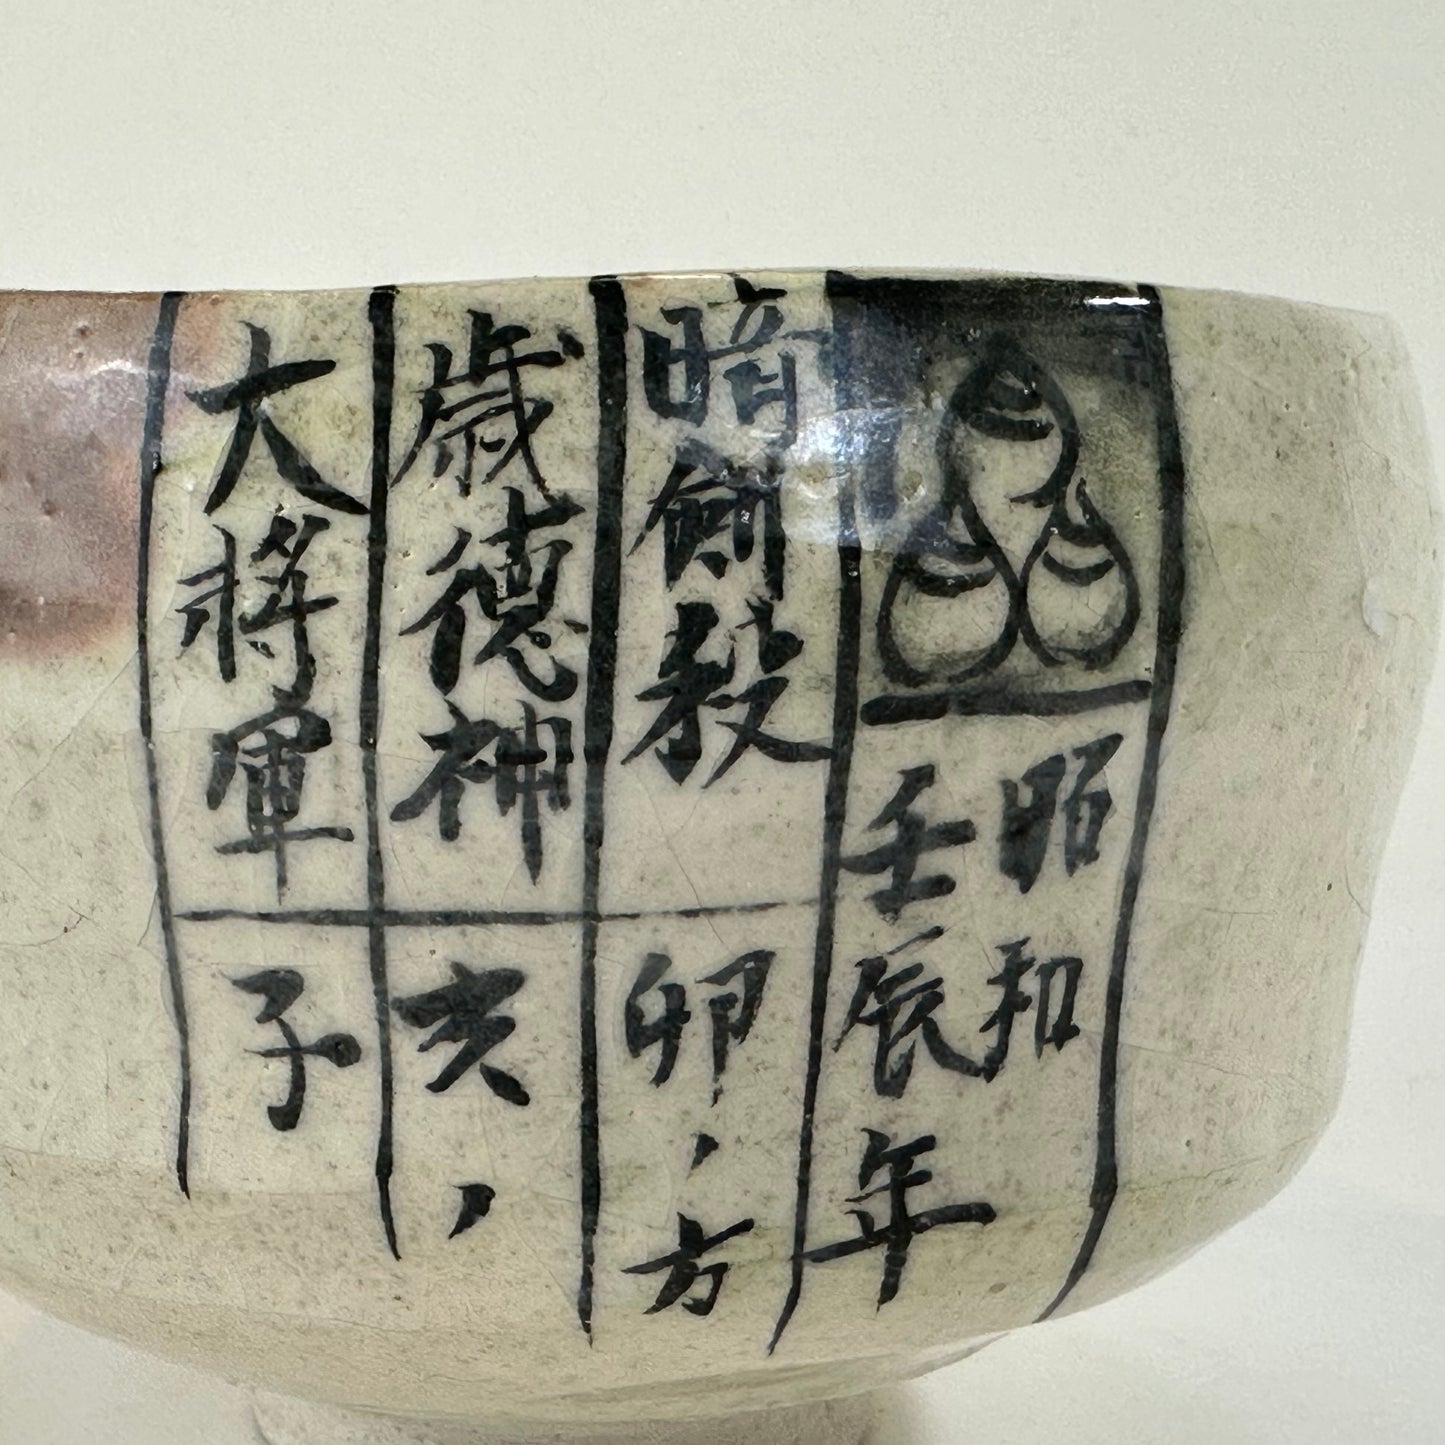 昭和
壬辰年
暗劍殺
卯ノ方
歳徳神
亥ノ
大將軍
子